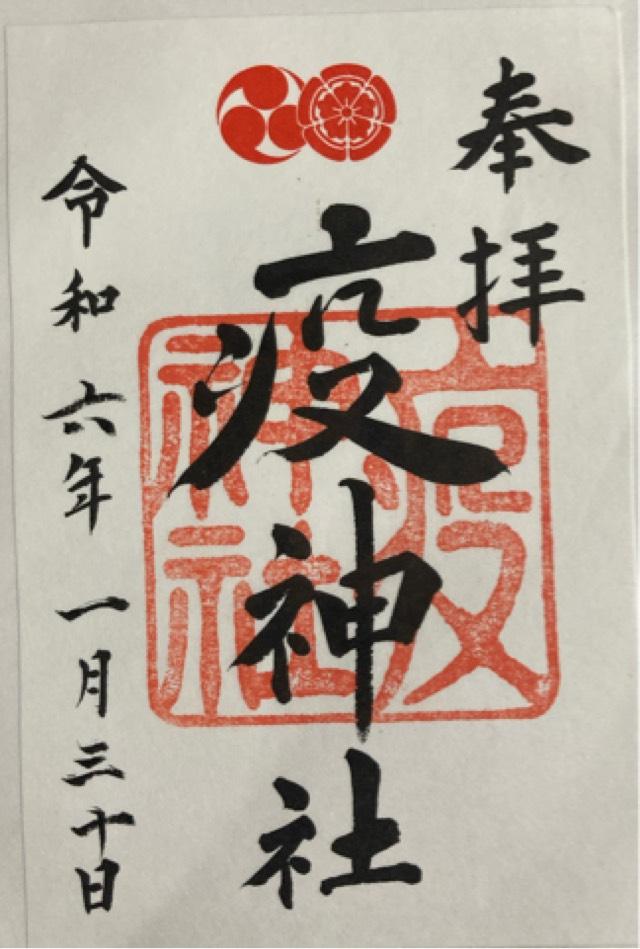 奉拝
疫神社
疫神社
令和六年一月三十日